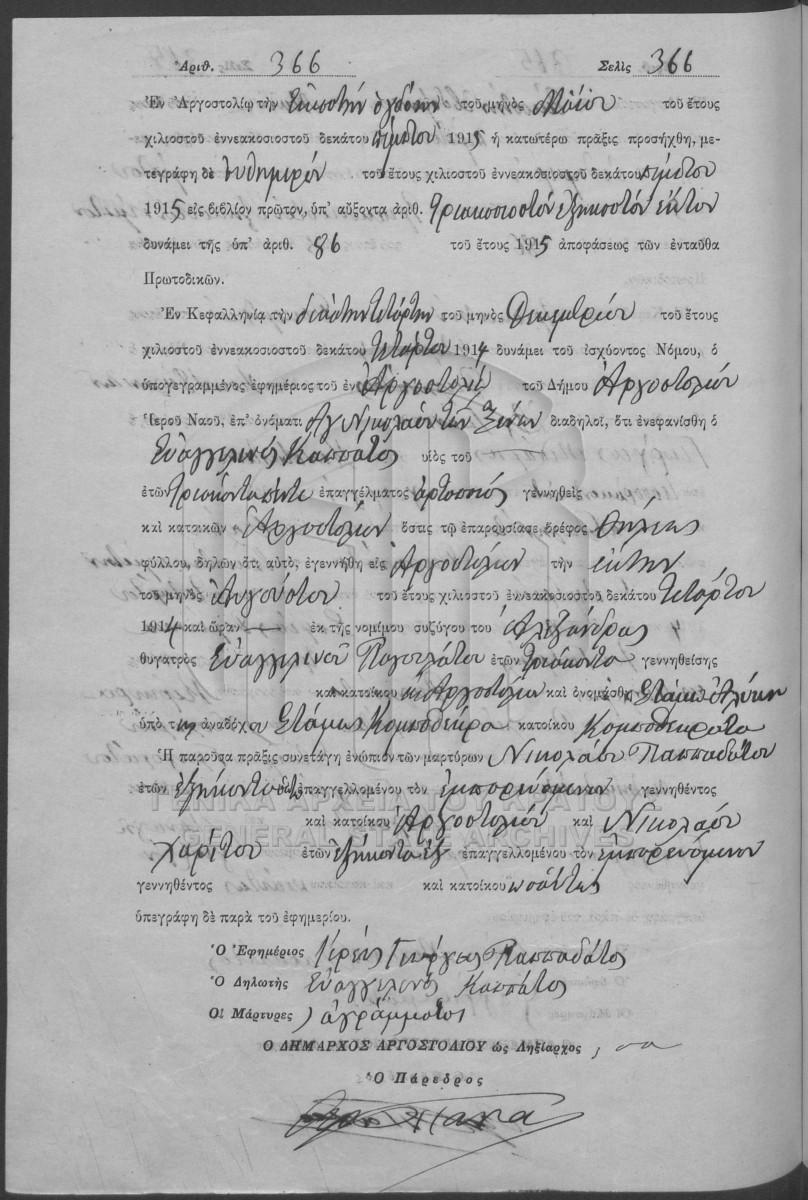 Ἀριθ. 366 Σελὶς 366
Ἐν Ἀργοστολίῳ τὴν Εἰκοστὴν ὀγδόην τοῦ μηνὸς Μαΐου τοῦ ἔτους
χιλιοστοῦ ἐννεακοσιοστοῦ δεκάτου πέμπτου 1915 ἡ κατωτέρω πρᾶξις προσήχθη, με-
τεγράφη δὲ αὐθημερὸν τοῦ ἔτους χιλιοστοῦ ἐννεακοσιοστοῦ δεκάτου πέμπτου
1915 εἰς βιβλίον πρῶτον, ὑπ' αὔξοντα ἀριθ. Τριακοσιοστὸν ἑξηκοστὸν ἕκτον
δυνάμει τῆς ὑπ' ἀριθ. 86 τοῦ ἔτους 1915 ἀποφάσεως τῶν ἐνταῦθα
Πρωτοδικῶν.
Ἐν Κεφαλληνίᾳ τὴν δεκάτην τετάρτην τοῦ μηνὸς Δεκεμβρίου τοῦ ἔτους
χιλιοστοῦ ἐννεακοσιοστοῦ δεκάτου τετάρτου 1914 δυνάμει τοῦ ἰσχύοντος Νόμου, ὁ
ὑπογεγραμμένος ἐφημέριος τοῦ ἐν Ἀργοστολίῳ τοῦ Δήμου Ἀργοστολίου
Ἱεροῦ Ναοῦ, ἐπ' ὀνόματι Ἁγ Νικολάου τῶν Ξένων διαδηλοῖ, ὅτι ἐνεφανίσθη ὁ
Εὐαγγελινὸς Καππάτος υἱὸς τοῦ
ἐτῶν τριάκοντα πέντε ἐπαγγέλματος ἀρτοποιὸς γεννηθεὶς
καὶ κατοικῶν Ἀργοστόλιον ὅστις τῷ ἐπαρουσίασε βρέφος θήλεος
φύλλου, δηλῶν ὅτι αὐτὸ, ἐγεννήθη εἰς Ἀργοστόλιον τὴν ἕκτην
τοῦ μηνὸς Αὐγούστου τοῦ ἔτους χιλιοστοῦ ἐννεακοσιοστοῦ δεκάτου τετάρτου
1914 καὶ ὥραν ἐκ τῆς νομίμου συζύγου του Ἀλεξάνδρας
θυγατρὸς Εὐαγγελινοῦ ἐτῶν τριάκοντα γεννηθείσης
καὶ κατοίκου Ἀργοστολίου καὶ ὀνομάσθη
ὑπὸ τοῦ ἀναδόχου κατοίκου
Ἡ παροῦσα πρᾶξις συνετάγη ἐνώπιον τῶν μαρτύρων Νικολάου Παππαδάτου
ἐτῶν ἑξήκοντα ἐπαγγελλομένου τὸν ἐμπορευόμενον γεννηθέντος
καὶ κατοίκου Ἀργοστολίου καὶ Νικολάου
Χαρίτου ἐτῶν ἑξήκοντα ἓξ ἐπαγγελλομένου τὸν ἐμπορευόμενον
γεννηθέντος καὶ κατοίκου ὡσαύτως
ὑπεγράφη δὲ παρὰ τοῦ ἐφημερίου.
Ὁ Ἐφημέριος Ἱερεὺς Γεώργιος Παππαδάτος
Ὁ Δηλωτὴς Εὐαγγελινὸς Καππάτος
Οἱ Μάρτυρες ἀγράμματοι
Ὁ ΔΗΜΑΡΧΟΣ ΑΡΓΟΣΤΟΛΙΟΥ ὡς Ληξίαρχος
Ὁ Πάρεδρος
ΓΕΝΙΚΑ ΑΡΧΕΙΑ ΤΟΥ ΚΡΑΤΟΥΣ
GENERAL STATE ARCHIVES